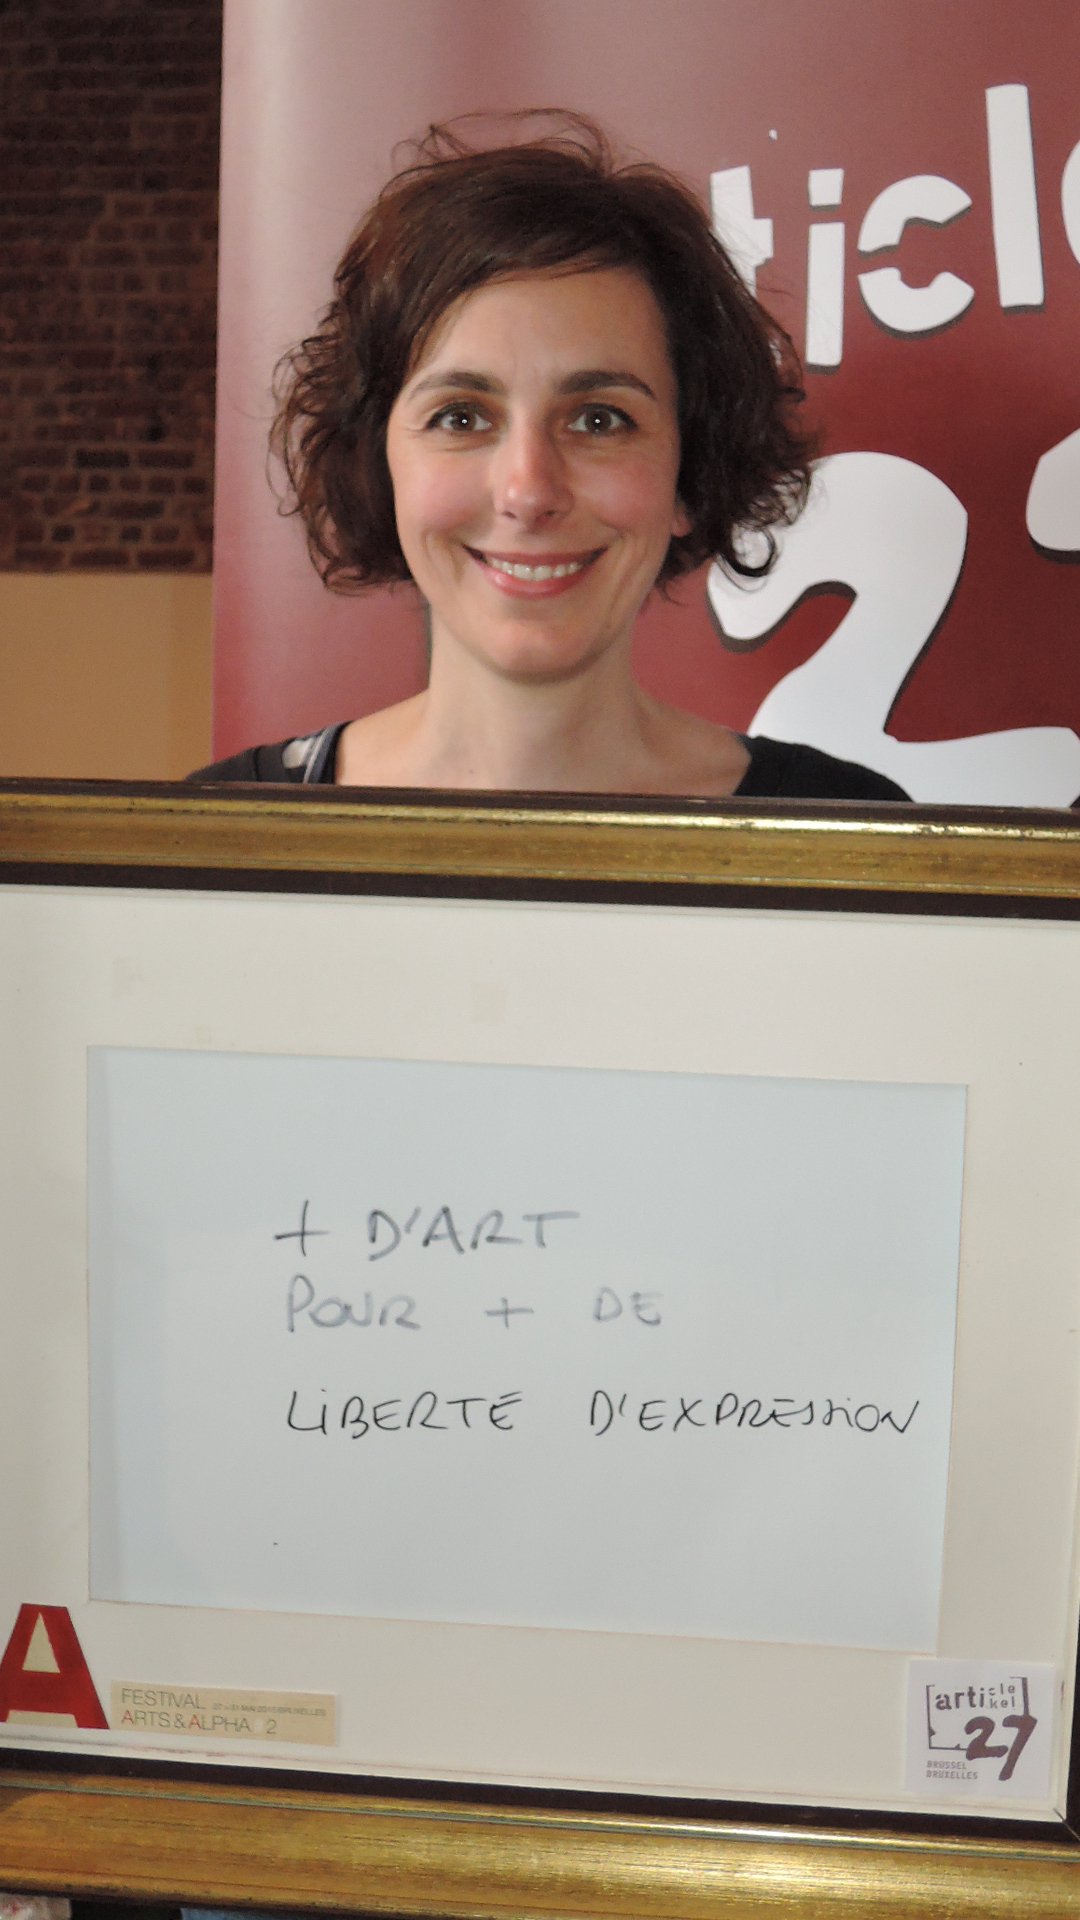 ticle
27
+ D'ART
POUR + DE
LIBERTÉ D'EXPRESSION
A
FESTIVAL 27 > 31 MAI 2015 BRUXELLES
ARTS & ALPHA 2
article
kel
27
BRUSSEL
BRUXELLES